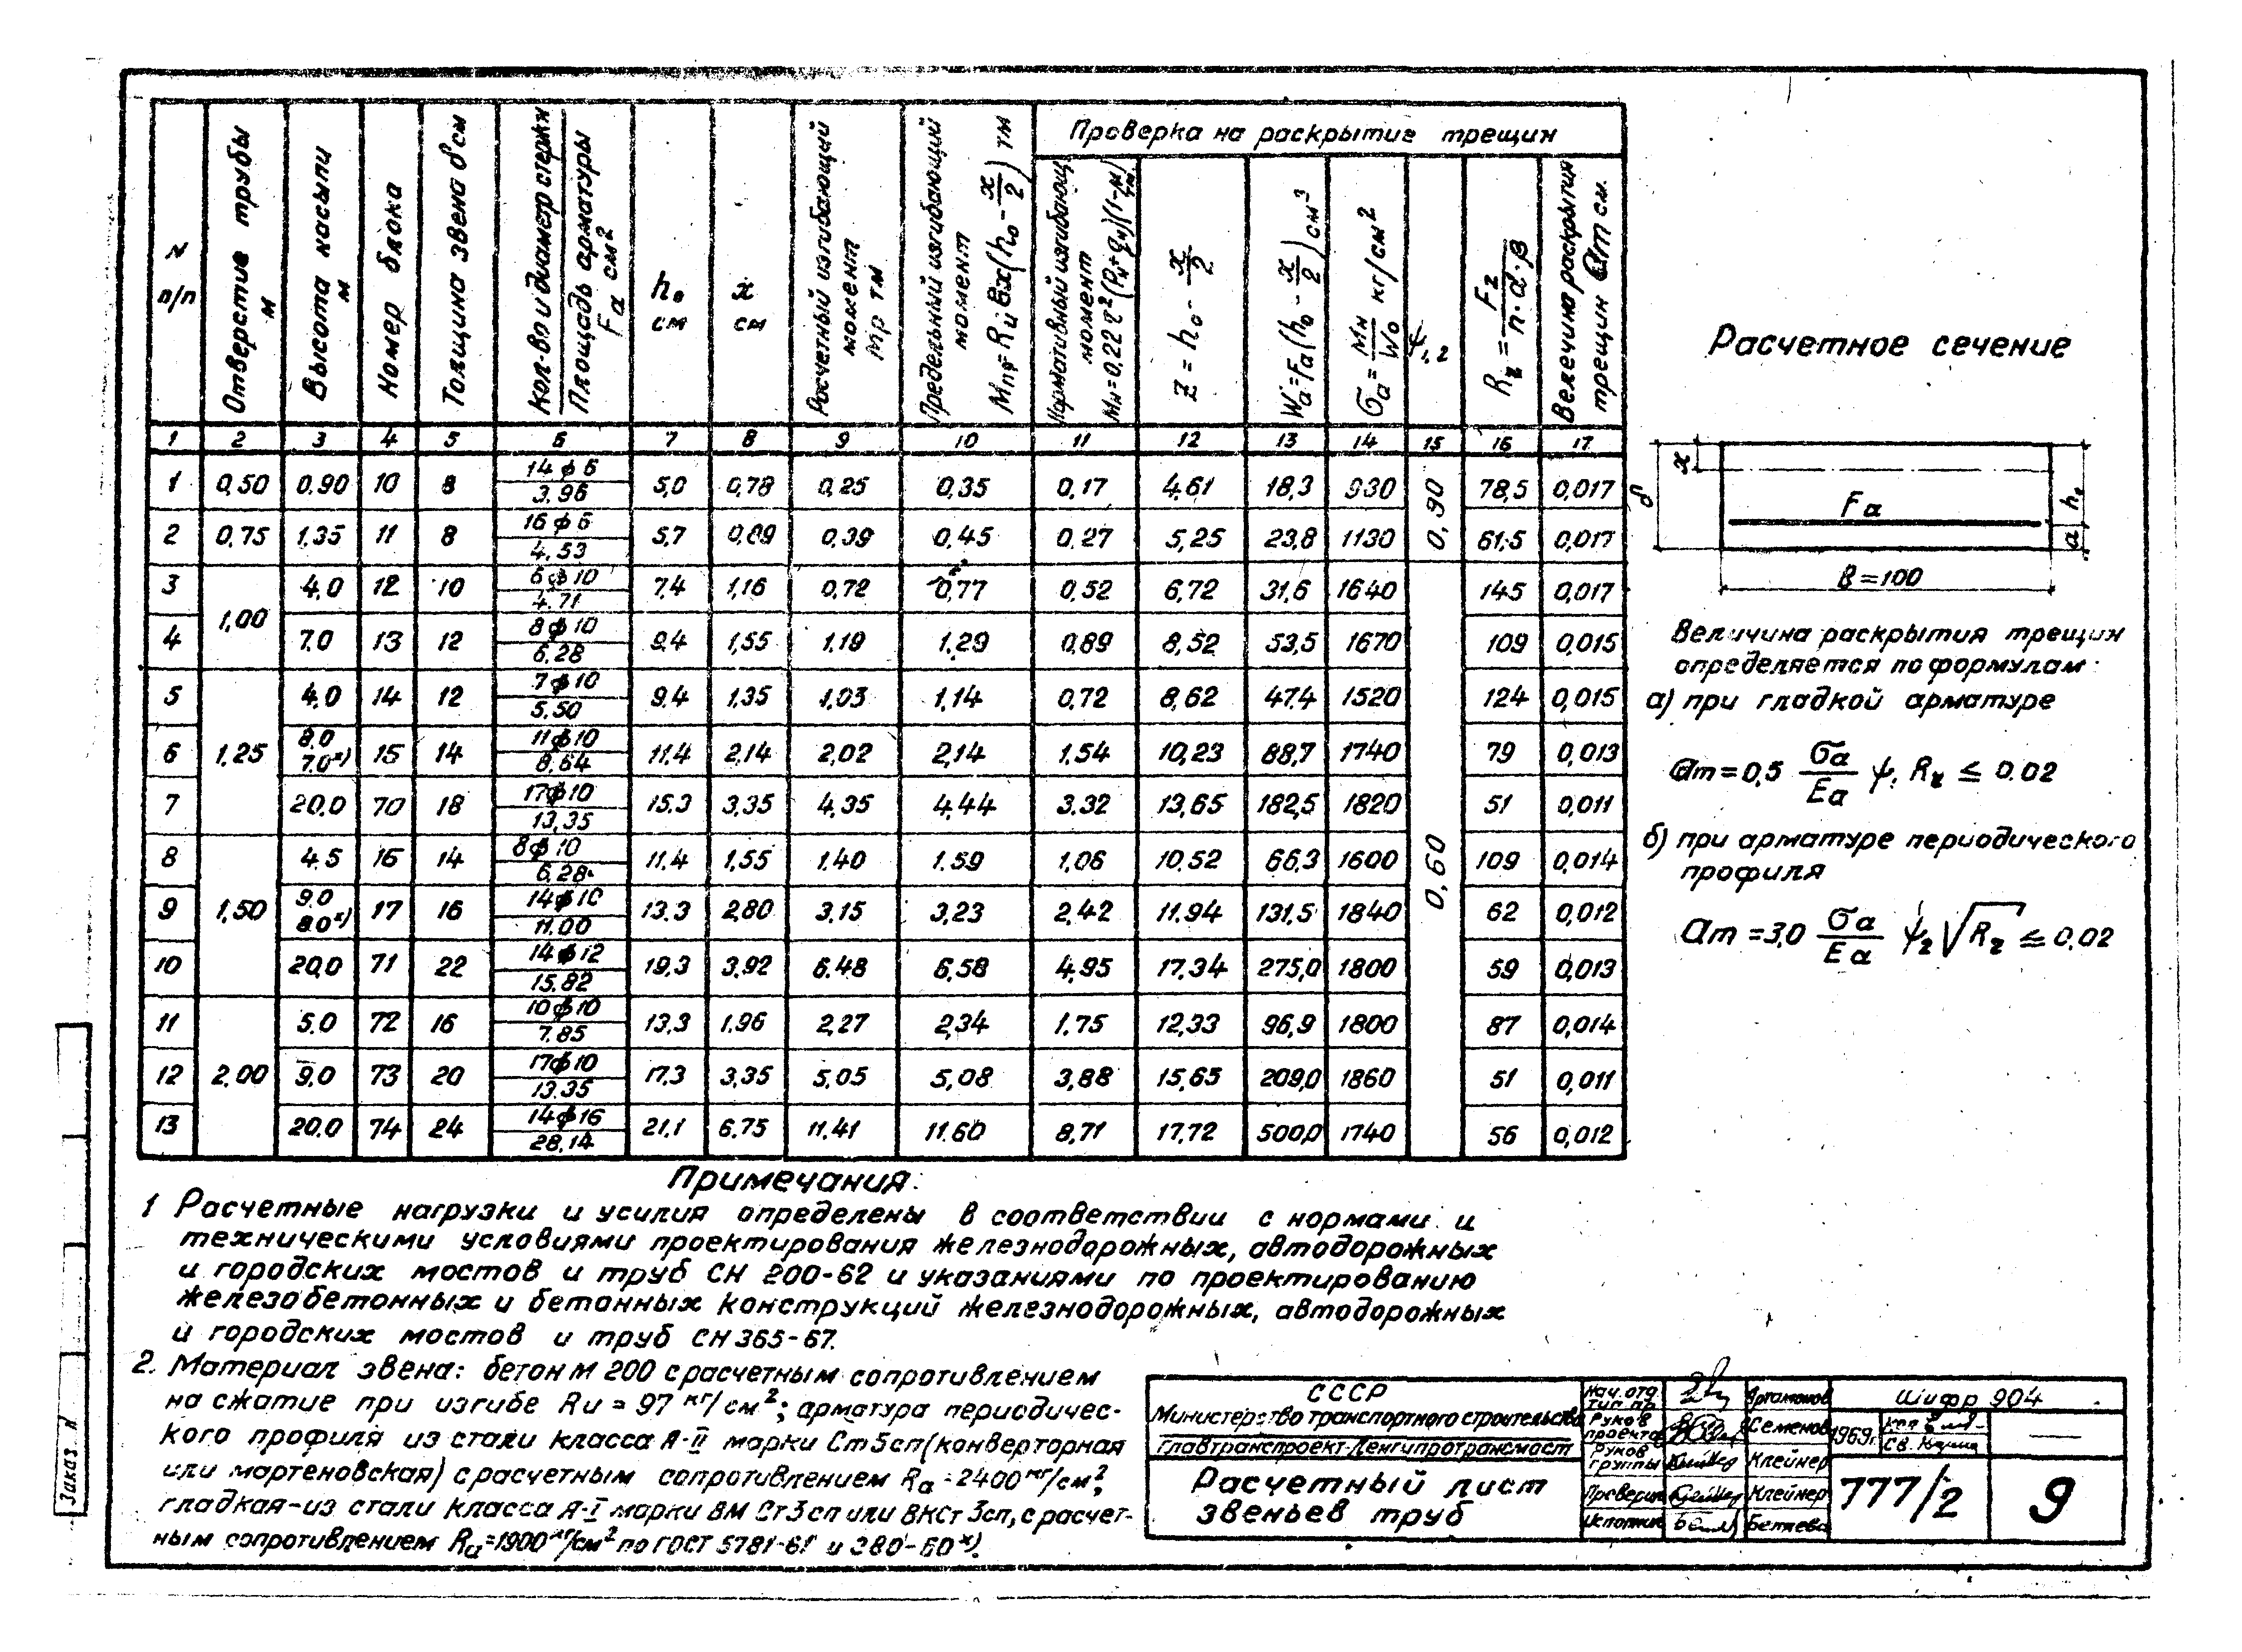 Проверка на раскрытие трещин
N п/п
Отверстие трубы м
Высота насыпи м
Номер блока
Толщина звена δ см
Кол-во и диаметр стержн
Площадь арматуры Fа см²
h₀ см
x см
Расчетный изгибающий момент Мр тм
Предельный изгибающий момент Мпр=Rи Вx(h₀-x/2) тм
Нормативный изгибающ. момент
Z=h₀-x/2
Wа=Fа(h₀-x/2) см³
σа=Мн/W₀ кг/см²
ψ1,2
Rz=Fz/n·d·β
Величина раскрытия трещин ат см.
1 2 3 4 5 6 7 8 9 10 11 12 13 14 15 16 17
1 0,50 0,90 10 8 14ф6 3.96 5,0 0,78 0,25 0,35 0,17 4,61 18,3 930 0,90 78,5 0,017
2 0,75 1,35 11 8 16ф6 4.53 5,7 0,89 0,39 0,45 0,27 5,25 23,8 1130 61,5 0,017
3 1,00 4,0 12 10 6ф10 4.71 7,4 1,16 0,72 0,77 0,52 6,72 31,6 1640 0,60 145 0,017
4 7.0 13 12 8ф10 6.28 9,4 1,55 1,19 1,29 0,89 8,52 53,5 1670 109 0,015
5 1,25 4,0 14 12 7ф10 5.50 9.4 1,35 1,03 1,14 0,72 8,62 47.4 1520 124 0,015
6 8.0 7.0х) 15 14 11ф10 8.64 11.4 2,14 2,02 2,14 1.54 10,23 88,7 1740 79 0,013
7 20,0 70 18 17ф10 13,35 15.3 3,35 4,35 4,44 3.32 13,65 182,5 1820 51 0,011
8 1,50 4.5 16 14 8ф10 6.28 11.4 1,55 1.40 1.59 1,06 10.52 66,3 1600 109 0,014
9 9.0 8.0х) 17 16 14ф10 11.00 13.3 2,80 3,15 3,23 2,42 11.94 131,5 1840 62 0,012
10 20,0 71 22 14ф12 15.82 19,3 3,92 6.48 6,58 4,95 17,34 275,0 1800 59 0,013
11 2,00 5.0 72 16 10ф10 7.85 13,3 1.96 2,27 2,34 1.75 12,33 96,9 1800 87 0,014
12 9,0 73 20 17ф10 13.35 17,3 3,35 5,05 5,08 3,88 15,65 209,0 1860 51 0,011
13 20.0 74 24 14ф16 28,14 21,1 6.75 11.41 11.60 8,71 17.72 500,0 1740 56 0,012
Расчетное сечение
x
δ
Fа
h₀
а
В=100
Величина раскрытия трещин
определяется по формулам:
а) при гладкой арматуре
ат=0,5 σа/Eа ψ₁ Rz ≤ 0.02
б) при арматуре периодического
профиля
ат=3,0 σа/Eа ψ₂√Rz ≤ 0,02
Примечания:
1 Расчетные нагрузки и усилия определены в соответствии с нормами и
техническими условиями проектирования железнодорожных, автодорожных
и городских мостов и труб СН 200-62 и указаниями по проектированию
железобетонных и бетонных конструкций железнодорожных, автодорожных
и городских мостов и труб СН 365-67.
2. Материал звена: бетон М 200 с расчетным сопротивлением
на сжатие при изгибе Rи = 97 кг/см²; арматура периодичес-
кого профиля из стали класса А-II марки Ст5сп (конверторная
или мартеновская) с расчетным сопротивлением Rа=2400 кг/см²;
гладкая-из стали класса А-I марки ВМ Ст3сп или ВКСт 3сп, с расчет-
ным сопротивлением Rа=1900 кг/см² по ГОСТ 5781-61 и 380-60х).
СССР
Министерство транспортного строительства
Главтранспроект-Ленгипротрансмост
Расчетный лист
звеньев труб
Нач. отд. тип. пр. Артамонов
Руков проекта Семенов
Руков группы Клейнер
Проверил Клейнер
Исполнил Беляева
Шифр 904
1969г.
777/2
9
Заказ N